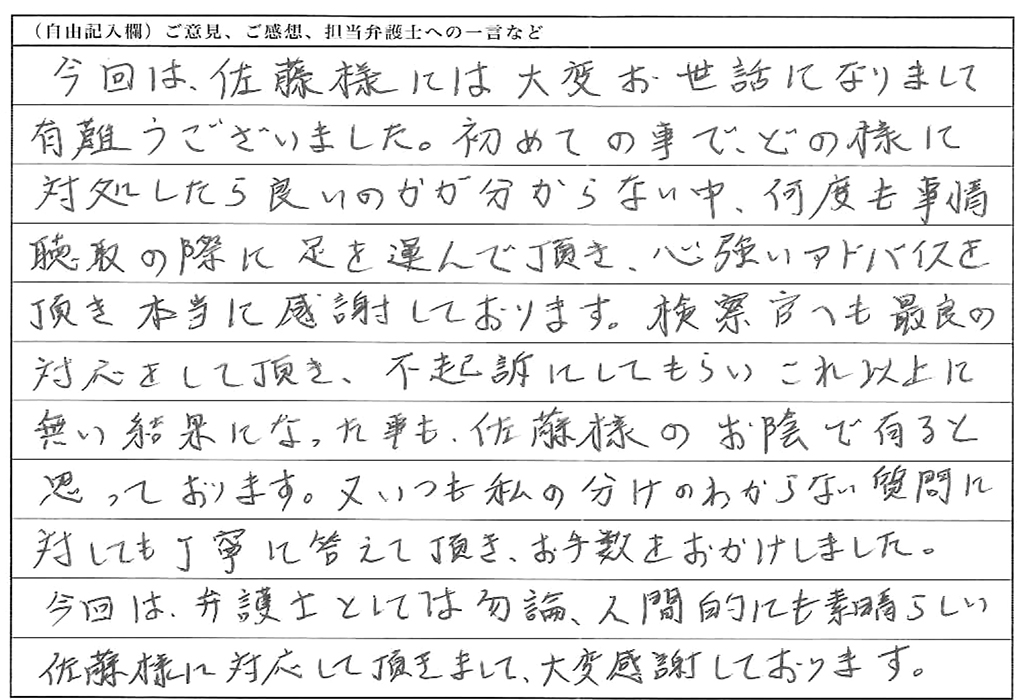 （自由記入欄）ご意見、ご感想、担当弁護士への一言など
今回は、佐藤様には大変お世話になりまして
有難うございました。初めての事で、どの様に
対処したら良いのかが分からない中、何度も事情
聴取の際に足を運んで頂き、心強いアドバイスを
頂き本当に感謝しております。検察官へも最良の
対応をして頂き、不起訴にしてもらいこれ以上に
無い結果になった事も、佐藤様のお陰で有ると
思っております。又いつも私の分けのわからない質問に
対しても丁寧に答えて頂き、お手数をおかけしました。
今回は、弁護士としては勿論、人間的にも素晴らしい
佐藤様に対応して頂きまして、大変感謝しております。